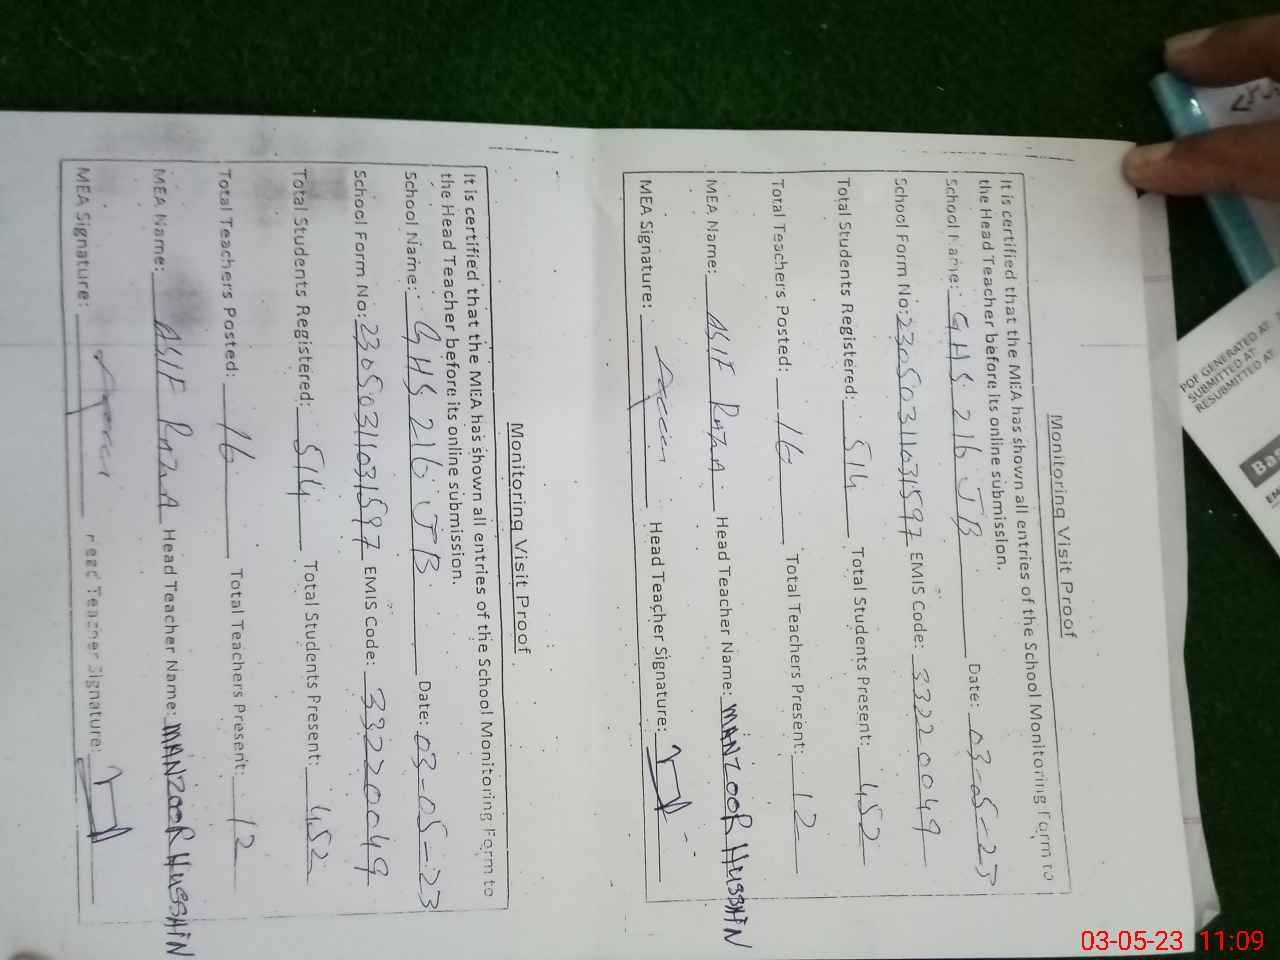 Monitoring Visit Proof
It is certified that the MEA has shown all entries of the School Monitoring Form to
the Head Teacher before its online submission.
School Name: GHS 216 JB Date: 03-05-23
School Form No: 23050311031597 EMIS Code: 33220049
Total Students Registered: 514 Total Students Present: 452
Total Teachers Posted: 16 Total Teachers Present: 12
MEA Name: ASIF RAZA Head Teacher Name: MANZOOR HUSSAIN
MEA Signature: Head Teacher Signature:
Monitoring Visit Proof
It is certified that the MEA has shown all entries of the School Monitoring Form to
the Head Teacher before its online submission.
School Name: GHS 216 JB Date: 03-05-23
School Form No: 23050311031597 EMIS Code: 33220049
Total Students Registered: 514 Total Students Present: 452
Total Teachers Posted: 16 Total Teachers Present: 12
MEA Name: ASIF RAZA Head Teacher Name: MANZOOR HUSSAIN
MEA Signature: Head Teacher Signature:
PDF GENERATED AT
SUBMITTED AT
RESUBMITTED AT
03-05-23 11:09